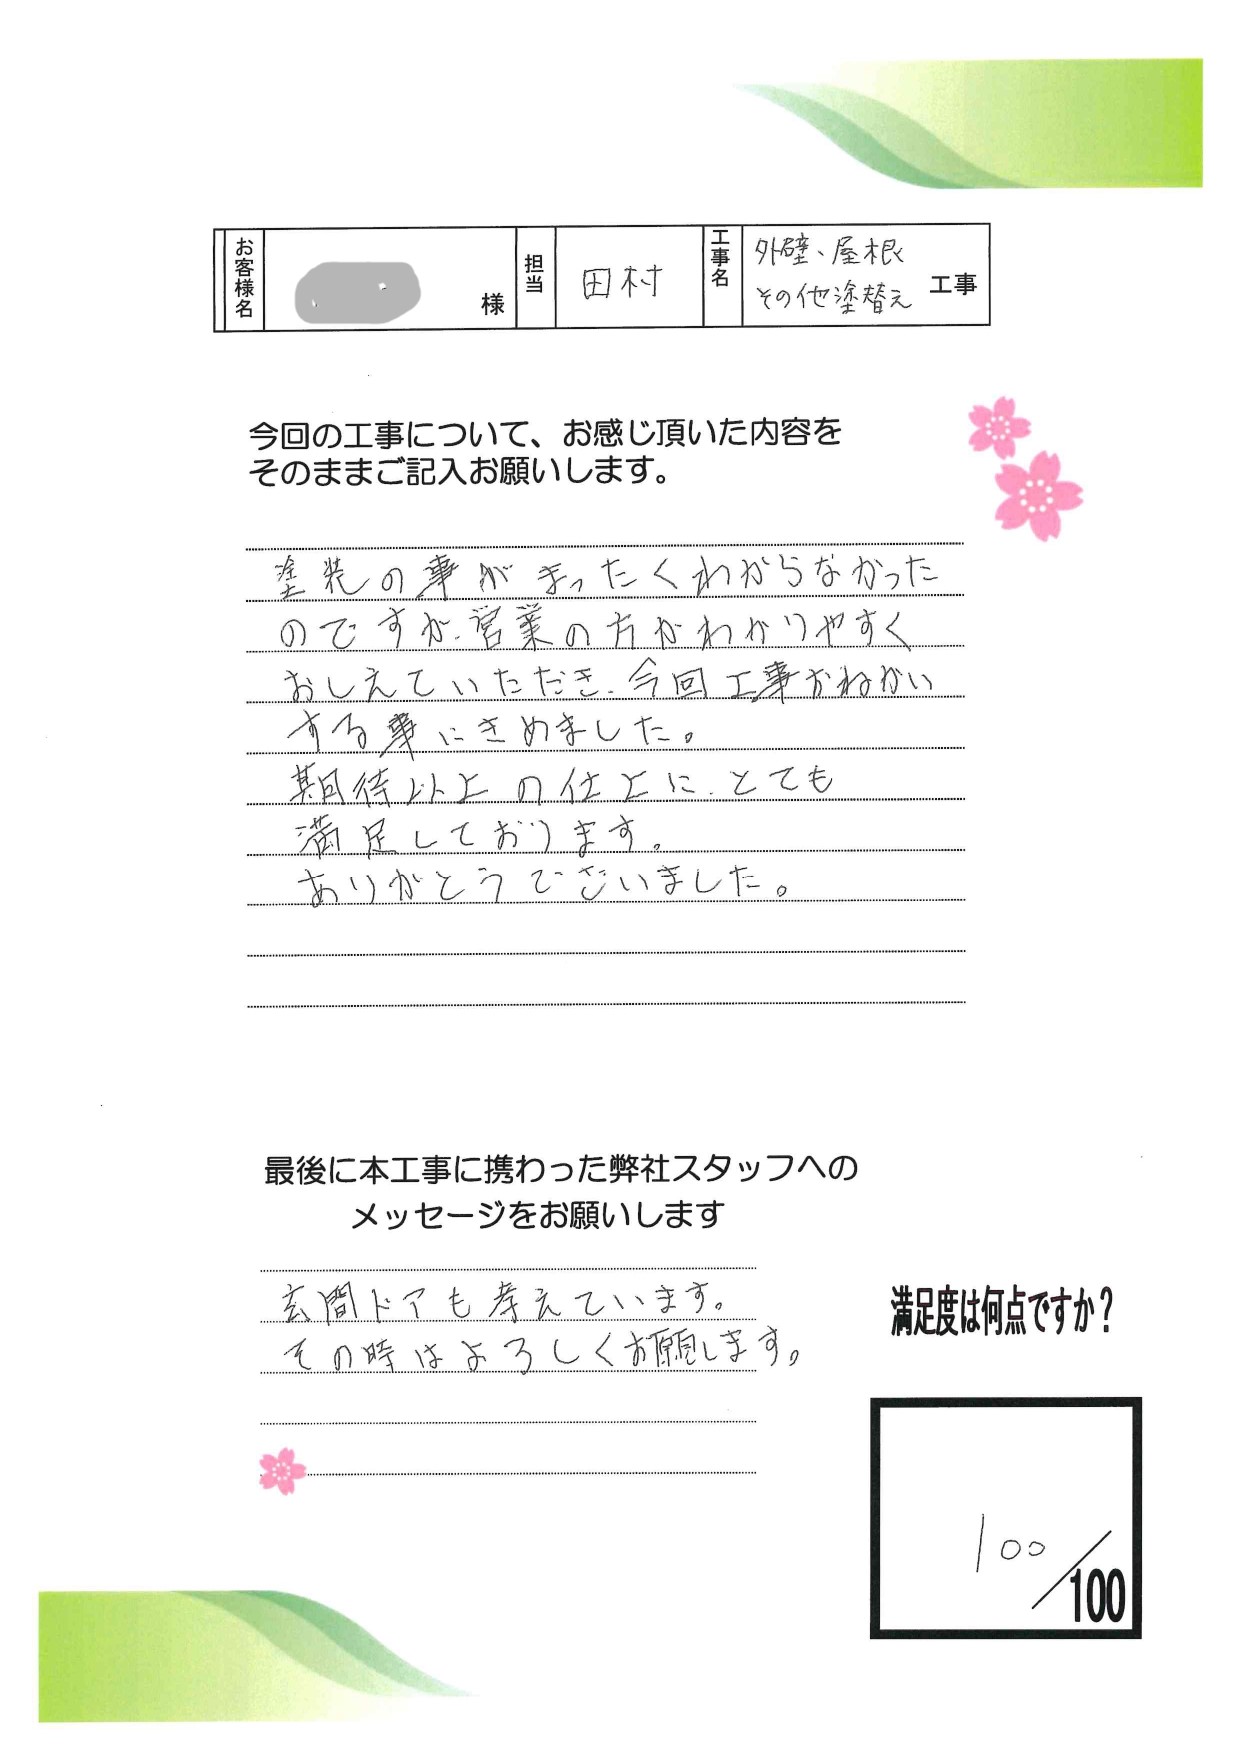 お客様名 様 担当 田村 工事名 外壁、屋根
その他塗替え 工事
今回の工事について、お感じ頂いた内容を
そのままご記入お願いします。
塗装の事がまったくわからなかった
のですが、営業の方がわかりやすく
おしえていただき、今回工事おねがい
する事にきめました。
期待以上の仕上に、とても
満足しております。
ありがとうございました。
最後に本工事に携わった弊社スタッフへの
メッセージをお願いします
玄関ドアも考えています。
その時はよろしくお願します。
満足度は何点ですか?
100/100